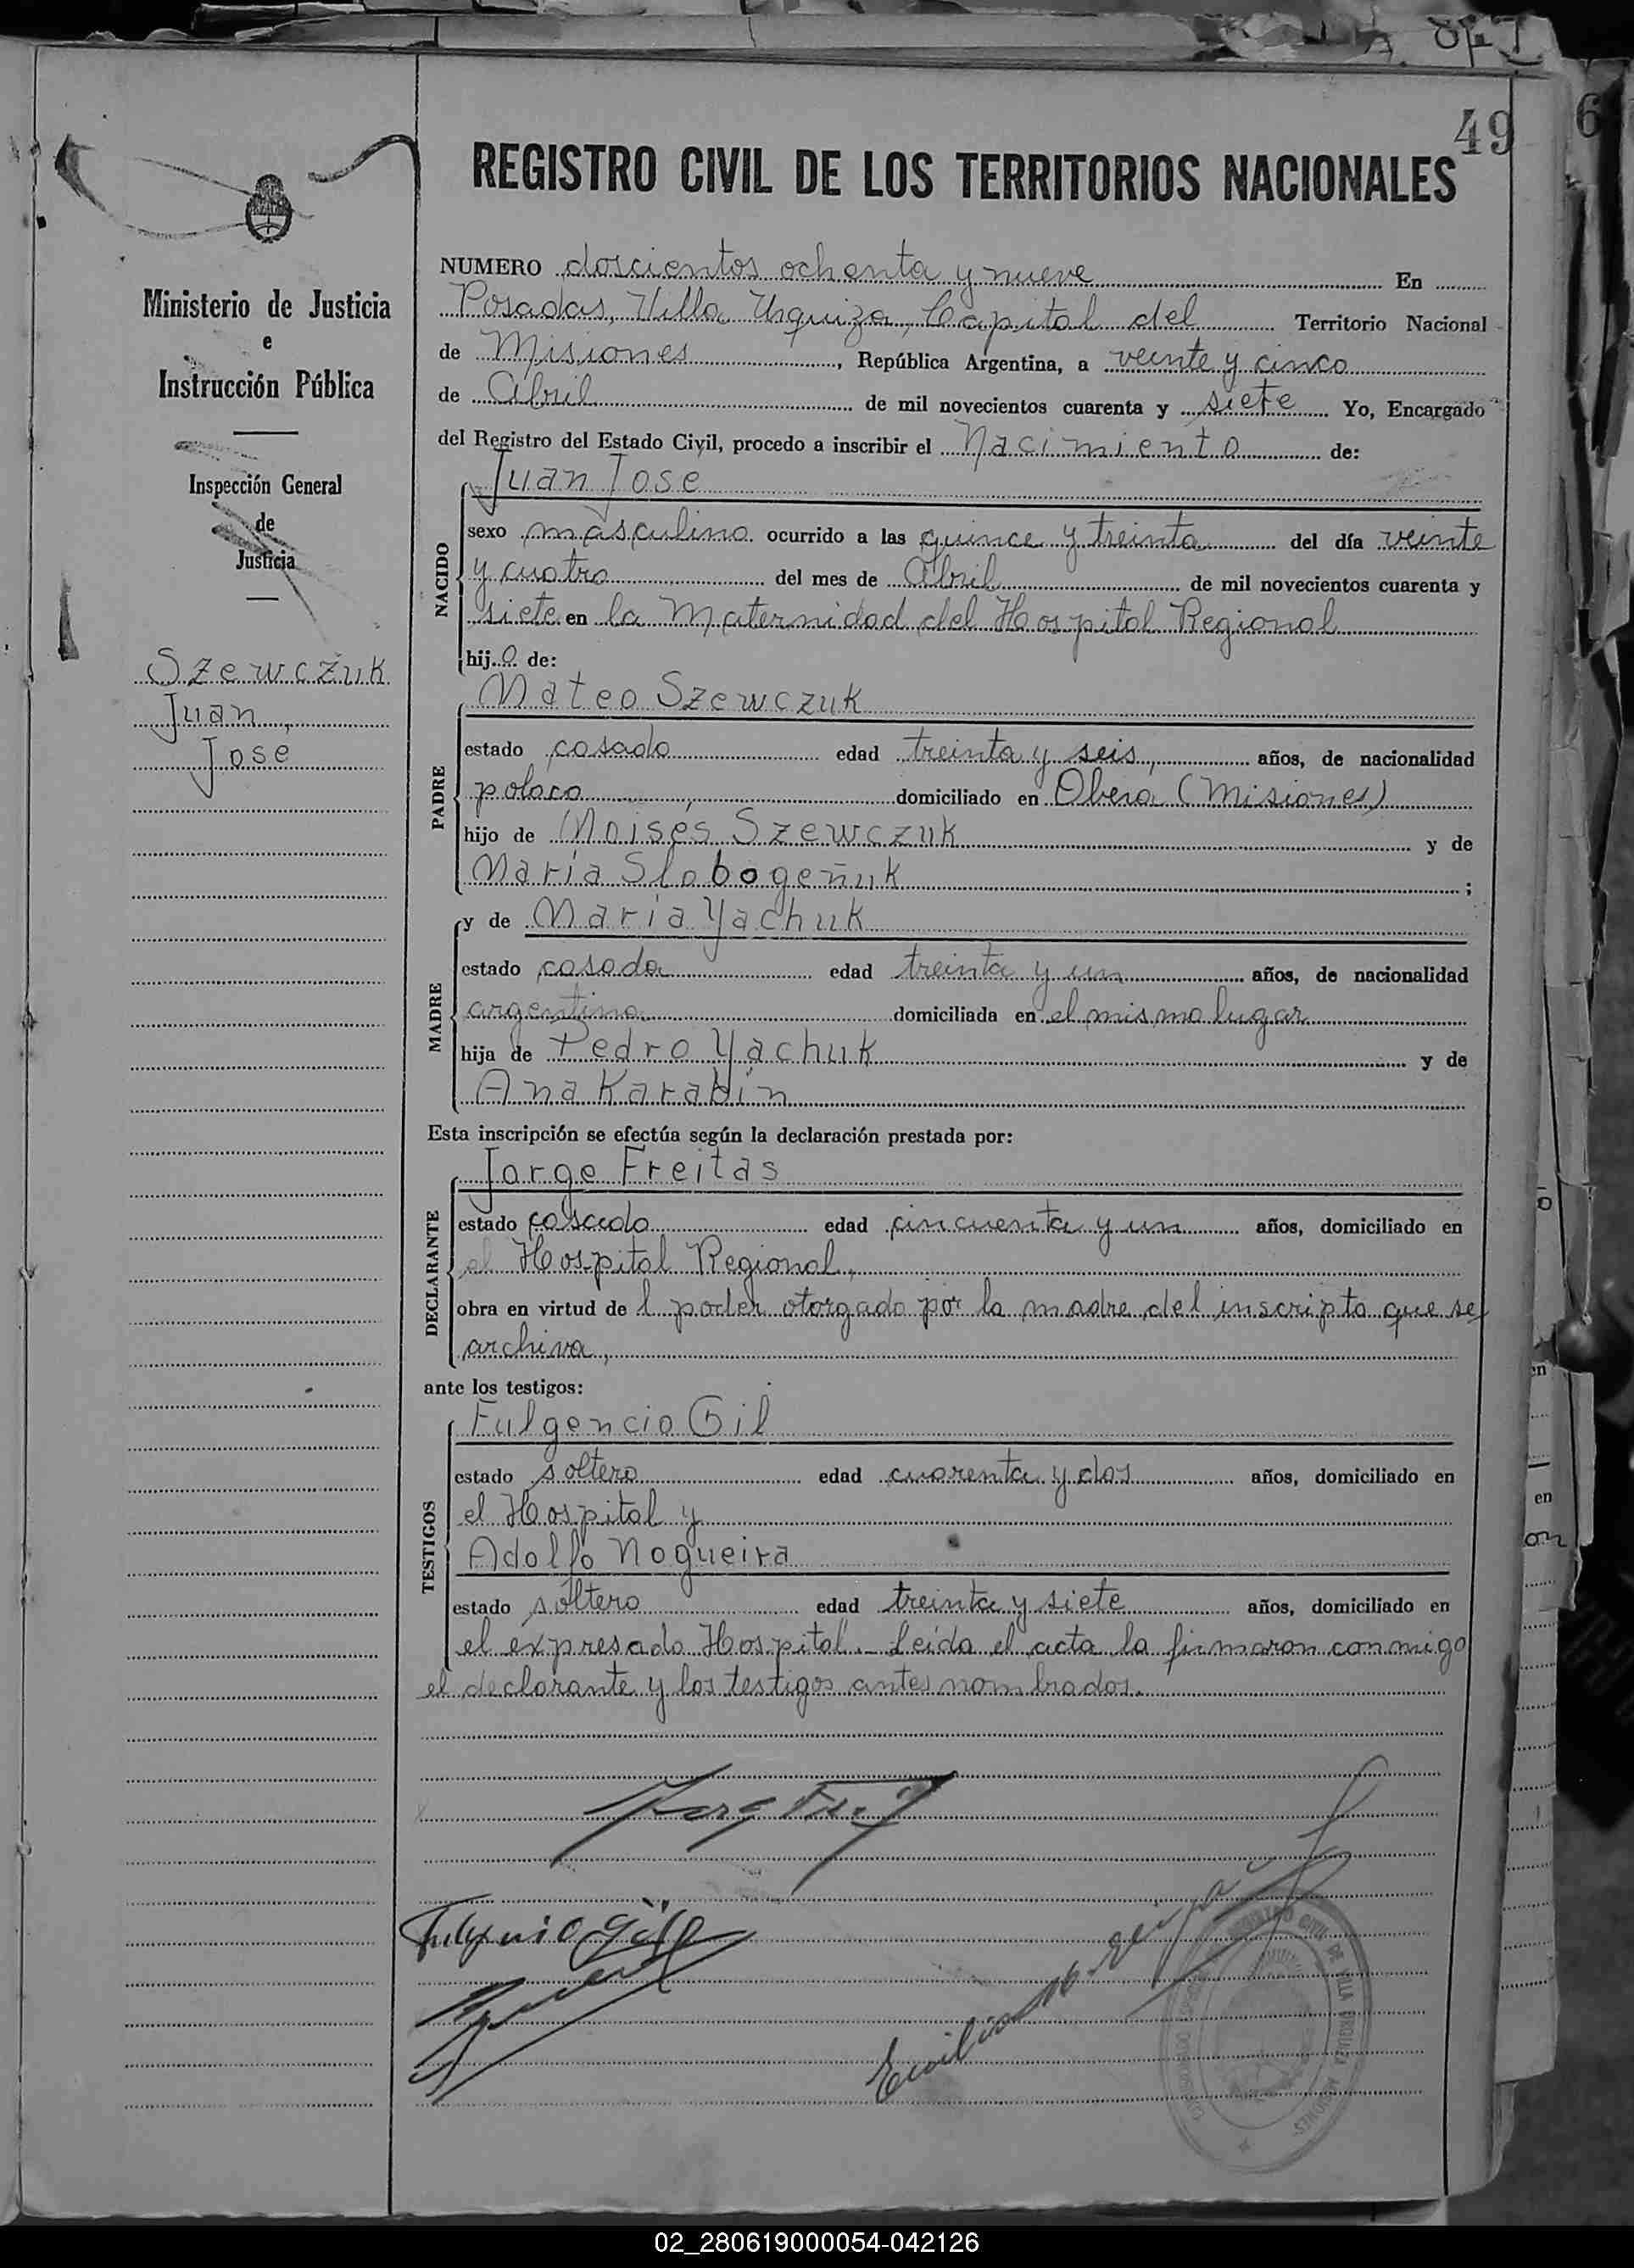 49
6
REGISTRO CIVIL DE LOS TERRITORIOS NACIONALES
Ministerio de Justicia
e
Instrucción Pública
Inspección General
de
Justicia
Szewczuk
Juan,
José
NUMERO doscientos ochenta y nueve En
Posadas, Villa Urquiza, Capital del Territorio Nacional
de Misiones, República Argentina, a veinte y cinco
de Abril de mil novecientos cuarenta y siete Yo, Encargado
del Registro del Estado Civil, procedo a inscribir el Nacimiento de:
Juan José
NACIDO
sexo masculino ocurrido a las quince y treinta del día veinte
y cuatro del mes de Abril de mil novecientos cuarenta y
siete en la Maternidad del Hospital Regional
hijo de:
Mateo Szewczuk
PADRE
estado casado edad treinta y seis, años, de nacionalidad
polaca, domiciliado en Obera (Misiones)
hijo de Moisés Szewczuk y de
María Slobogeñuk;
MADRE
y de María Yachuk
estado casada edad treinta y un años, de nacionalidad
argentina domiciliada en el mismo lugar
hija de Pedro Yachuk y de
Ana Karabin
Esta inscripción se efectúa según la declaración prestada por:
Jorge Freitas
DECLARANTE
estado casado edad cincuenta y un años, domiciliado en
el Hospital Regional,
obra en virtud de l poder otorgado por la madre del inscripto que se
archiva,
ante los testigos:
Fulgencio Gil
TESTIGOS
estado soltero edad cuarenta y dos años, domiciliado en
el Hospital y
Adolfo Nogueira
estado soltero edad treinta y siete años, domiciliado en
el expresado Hospital.- Leída el acta la firmaron conmigo
el declarante y los testigos antes nombrados.
Fulgencio Gil
REGISTRO CIVIL DE VILLA URQUIZA MISIONES
02_280619000054-042126